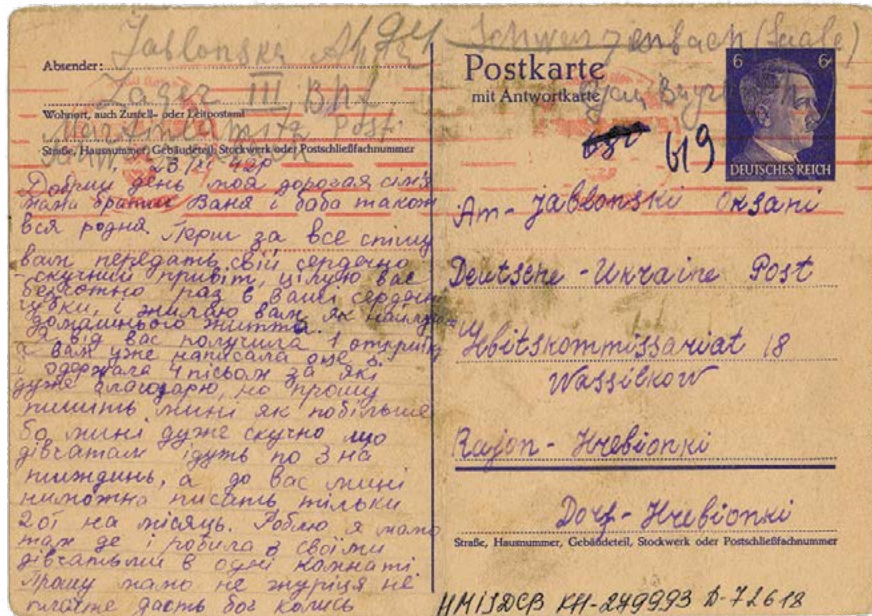 Absender: Jablonska
Lager III, Bhf
Wohnort, auch Zustell- oder Leitpostamt
Martinlamitz Post
Straße, Hausnummer, Gebäudeteil, Stockwerk oder Postschließfachnummer
Schwarzenbach (Saale)
Postkarte
mit Antwortkarte
6 6
DEUTSCHES REICH
619
23/XI 42р
Добрий день моя дорогая сімя
мамо братік Ваня і баба також
вся родня. Перш за все спішу
вам передать свій сердечно
-скучний привіт, цілую вас
безсотно раз в ваші сердечні
губки, і жилаю вам як найлуч
домашнього життя.
Я від вас получила 1 открит
а вам уже написала оце
і одержала 4 письом за які
дуже благодарю, но прошу
пишить мині як побільше
бо мині дуже скучно що
дівчатам ідуть по 3 на
тиждинь, а до вас мині
ниможна писать тільки
2ої на місяць. Роблю я мамо
там де і робила з своїми
дівчатьми в одні комнаті
Прошу мамо не журіця не
плачте дасть бог колись
An - Jablonski Oksani
Deutsche - Ukraine Post
Hbitskommissariat 18
Wassilkow
Rajon - Hrebionki
Dorf - Hrebionki
Straße, Hausnummer, Gebäudeteil, Stockwerk oder Postschließfachnummer
НМІЗДСВ КН-249993 Д-72618